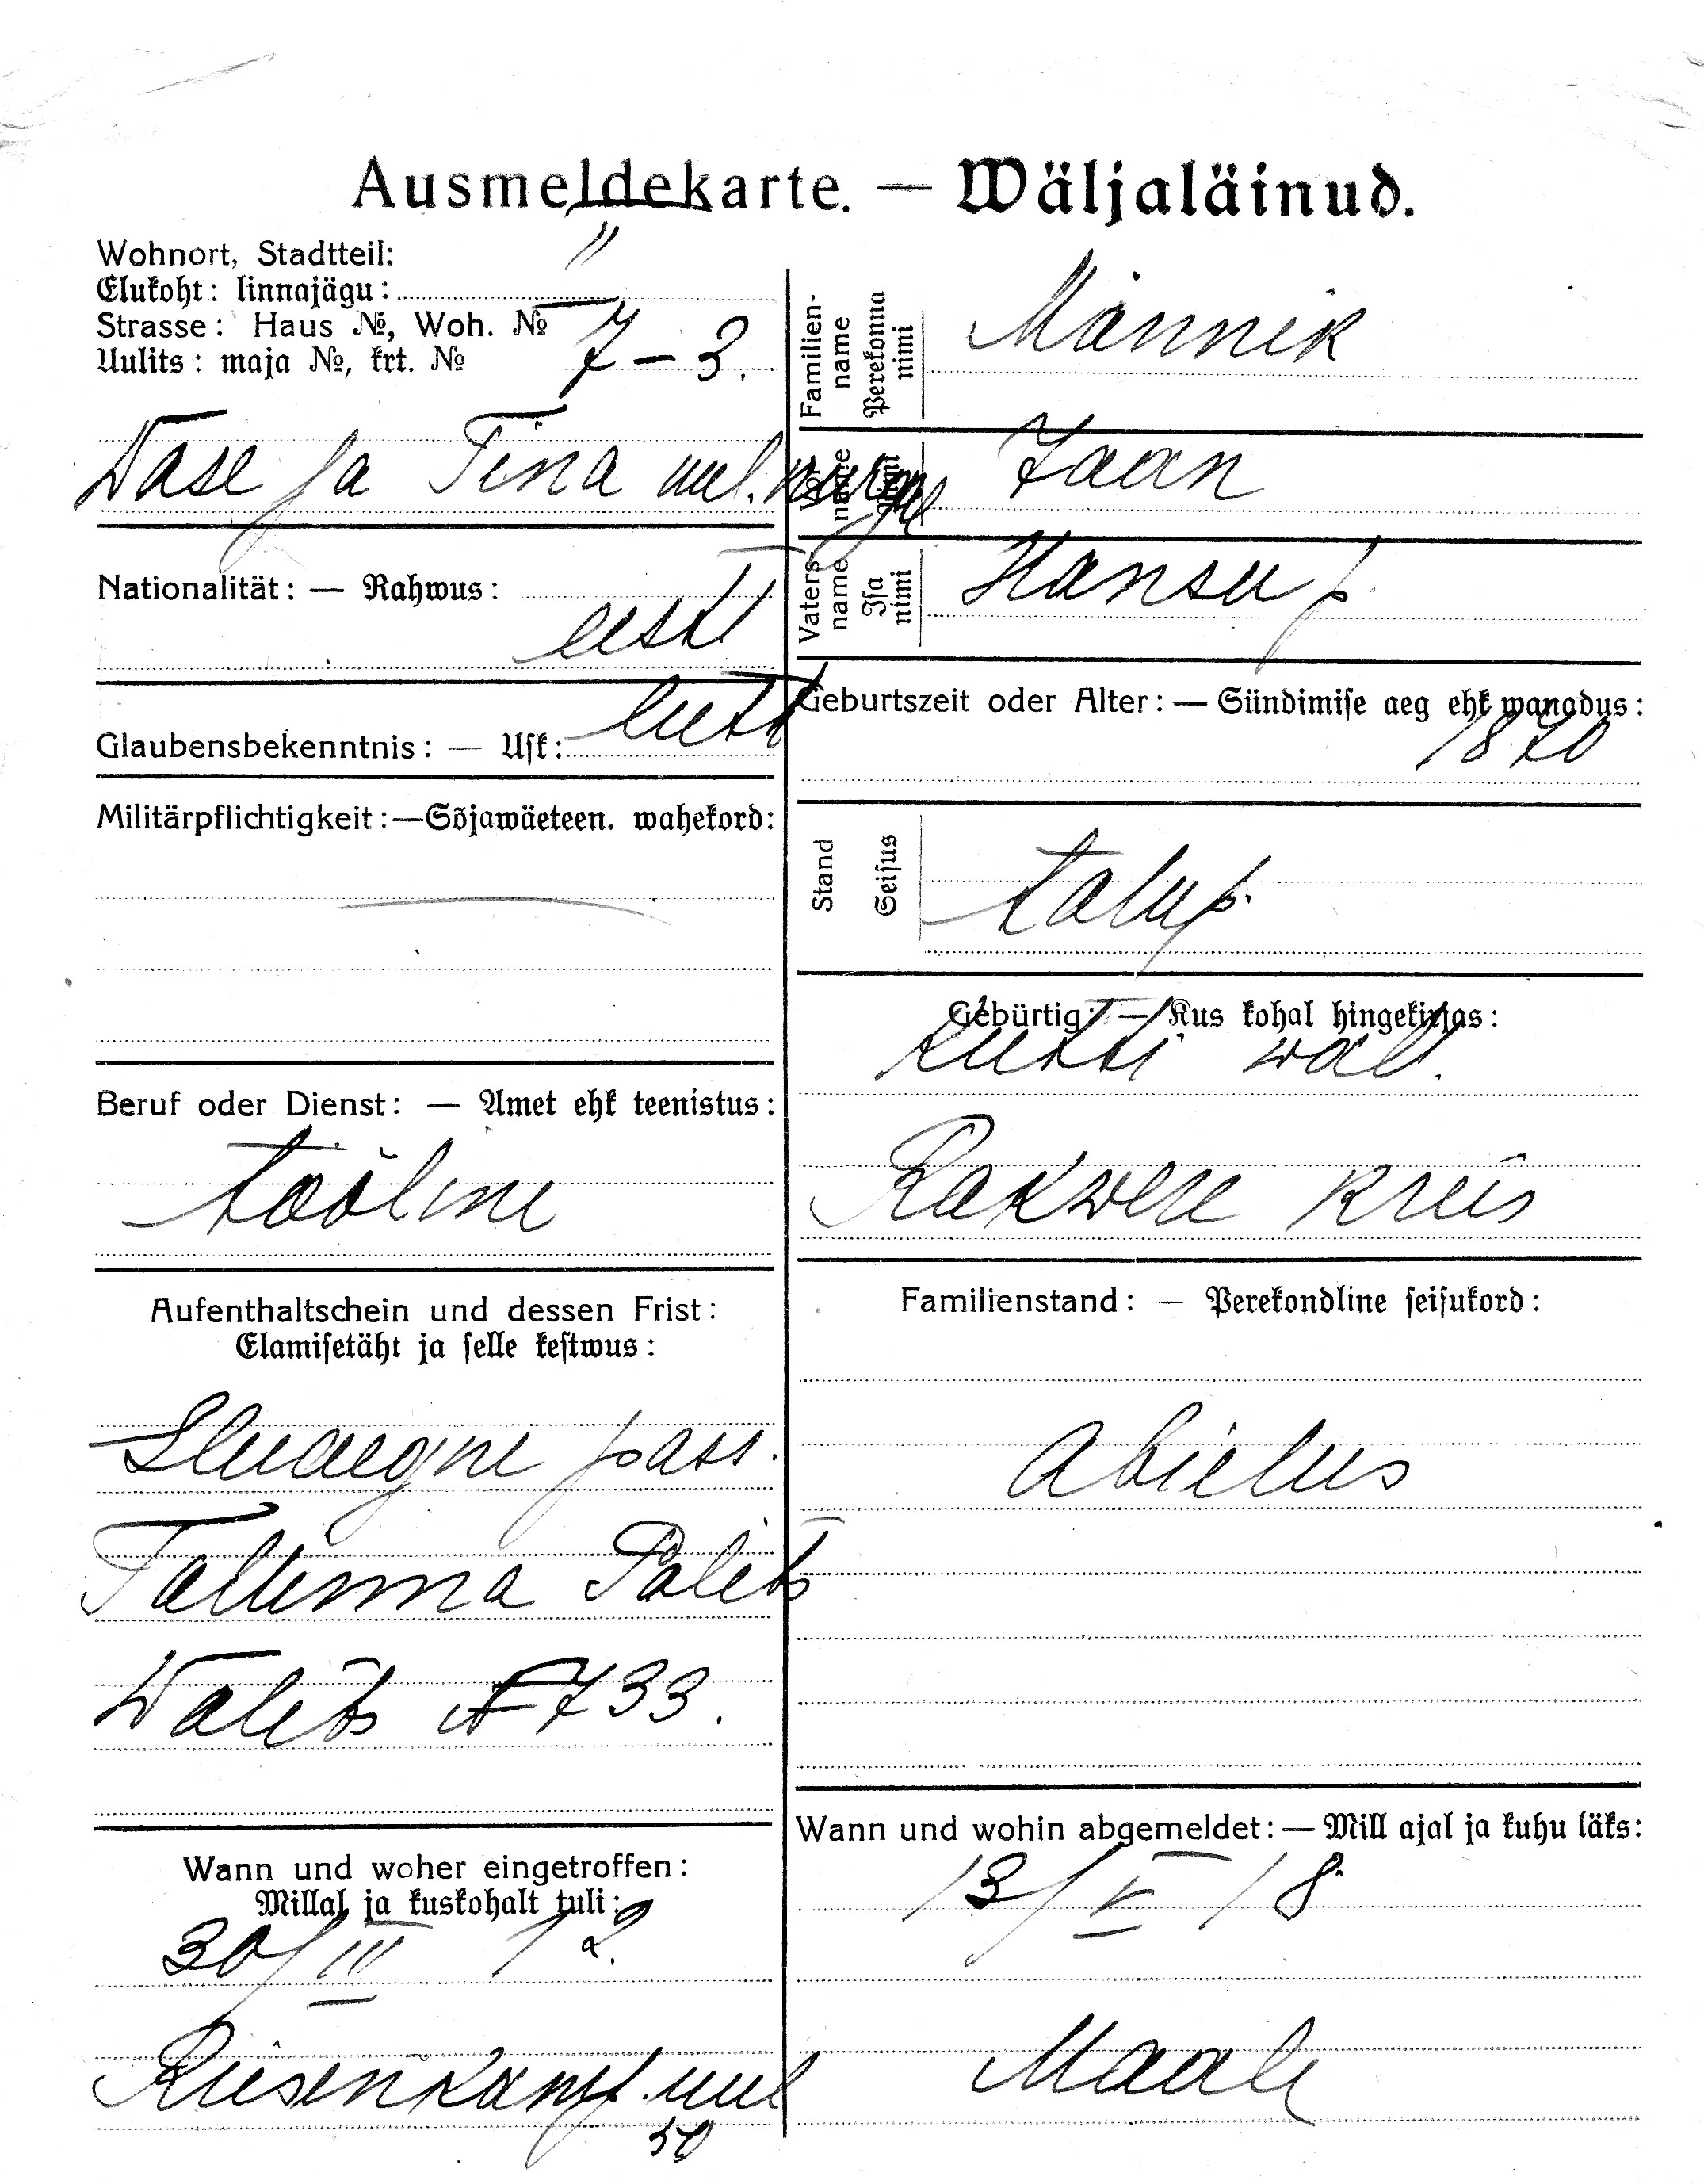 Ausmeldekarte. — Wäljaläinud.
Wohnort, Stadtteil:
Elukoht: linnajägu:
II
Strasse: Haus №, Woh. №
Uulits: maja №, krt. №
7 – 3.
Wase ja Tina uul. nurgal
Nationalität: — Rahwus:
eesti
Glaubensbekenntnis: — Usk:
lutt
Militärpflichtigkeit:—Sõjawäeteen. wahekord:
Beruf oder Dienst: — Amet ehk teenistus:
tööline
Aufenthaltschein und dessen Frist:
Elamisetäht ja selle kestwus:
Eluaegne pass.
Tallinna Polits
Walits № 733.
Wann und woher eingetroffen:
Millal ja kuskohalt tuli:
30/III 12.
Riesenkampf uul
Familien-
name
Perekonna
nimi
Männik
Vor-
name
nimi
Jaan
Vaters-
name
Isa
nimi
Hansu p.
Geburtszeit oder Alter: — Sündimise aeg ehk wanadus:
1870
Stand
Seisus
talup.
Gebürtig: — Kus kohal hingekirjas:
Kutti wall.
Rakwere kreis
Familienstand: — Perekondline seisukord:
abielus
Wann und wohin abgemeldet: — Mill ajal ja kuhu läks:
13/V 18.
Maale